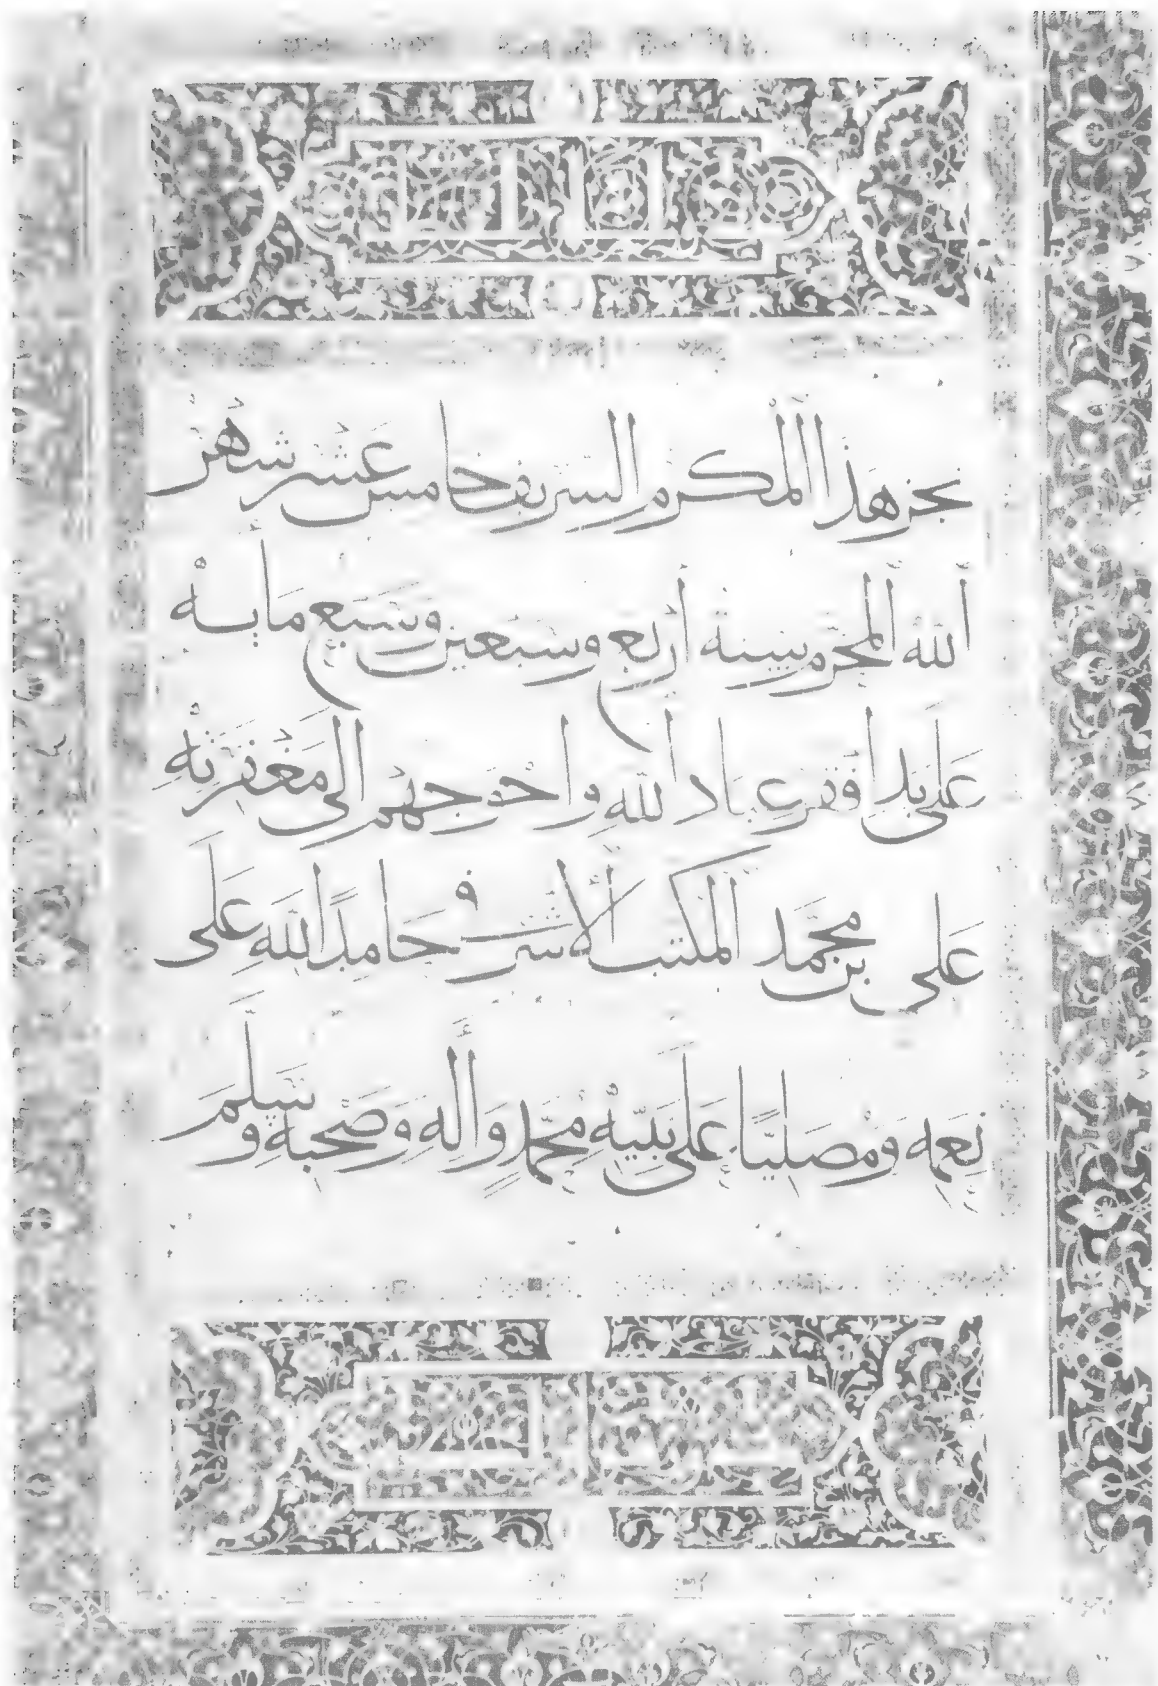 نجز هذا المكرم الشريف خامس عشر شهر
الله المحرم سنة أربع وسبعين وسبع مايه
على يد افقر عباد الله واحوجهم الى مغفرته
على بن محمد المكتب الاشرفى حامدًا لله على
نعمه ومصليًا على نبيه محمدٍ واله وصحبه وسلم